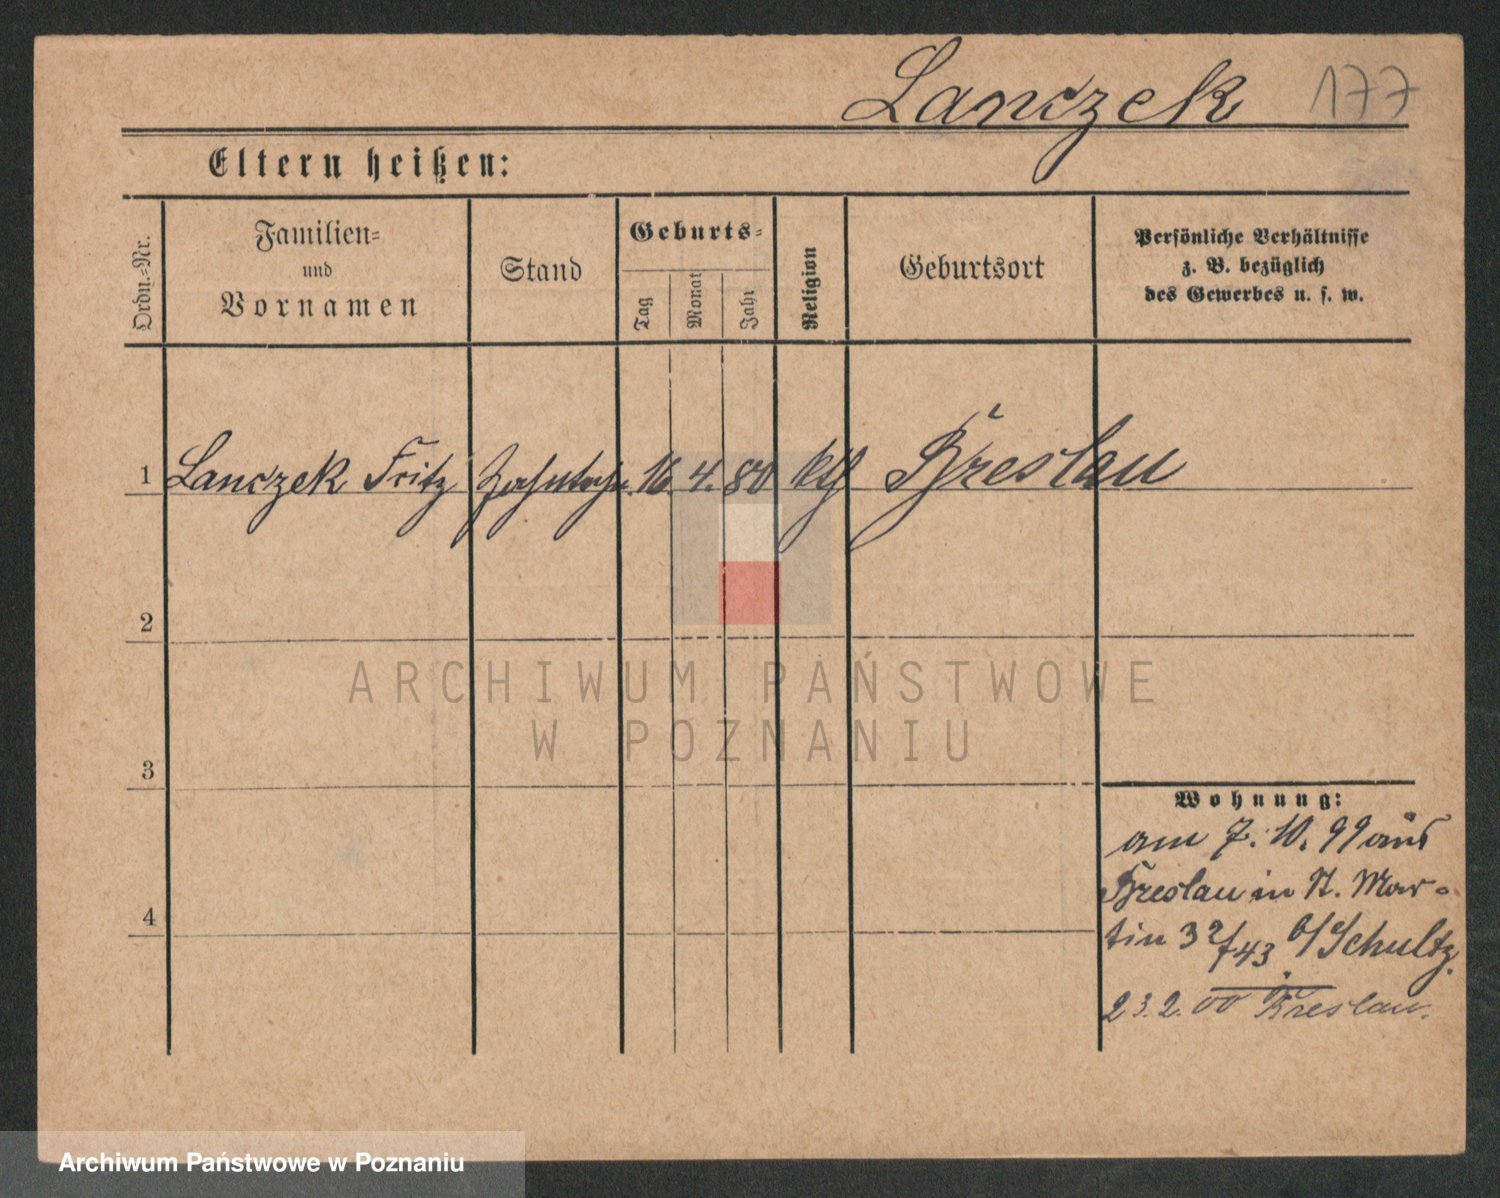 Lanczek 177
Eltern heißen:
Ordn.-Nr.
Familien-
und
Vornamen
Stand
Geburts-
Tag
Monat
Jahr
Religion
Geburtsort
Persönliche Verhältnisse
z. B. bezüglich
des Gewerbes u. s. w.
1 Lanczek Fritz Zahntechn. 16. 4. 80 kth Breslau
2
3
4
ARCHIWUM PAŃSTWOWE
W POZNANIU
Wohnung:
am 7. 10. 99 aus
Breslau in St. Mar-
tin 32/43 b/Schultz.
23.2.00 Breslau.
Archiwum Państwowe w Poznaniu